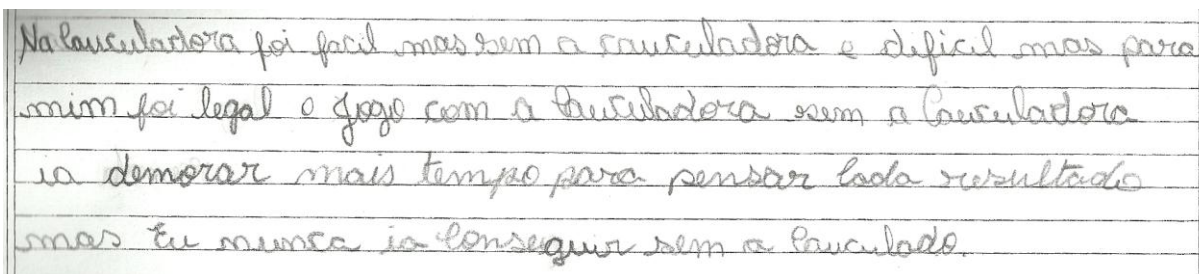 Na Cauculadora foi facil mas sem a cauculadora e dificil mas para
mim foi legal o jogo com a Cauculadora sem a Cauculadora
ia demorar mais tempo para pensar Cada resultado
mas Eu nunca ia Conseguir sem a Cauculado.